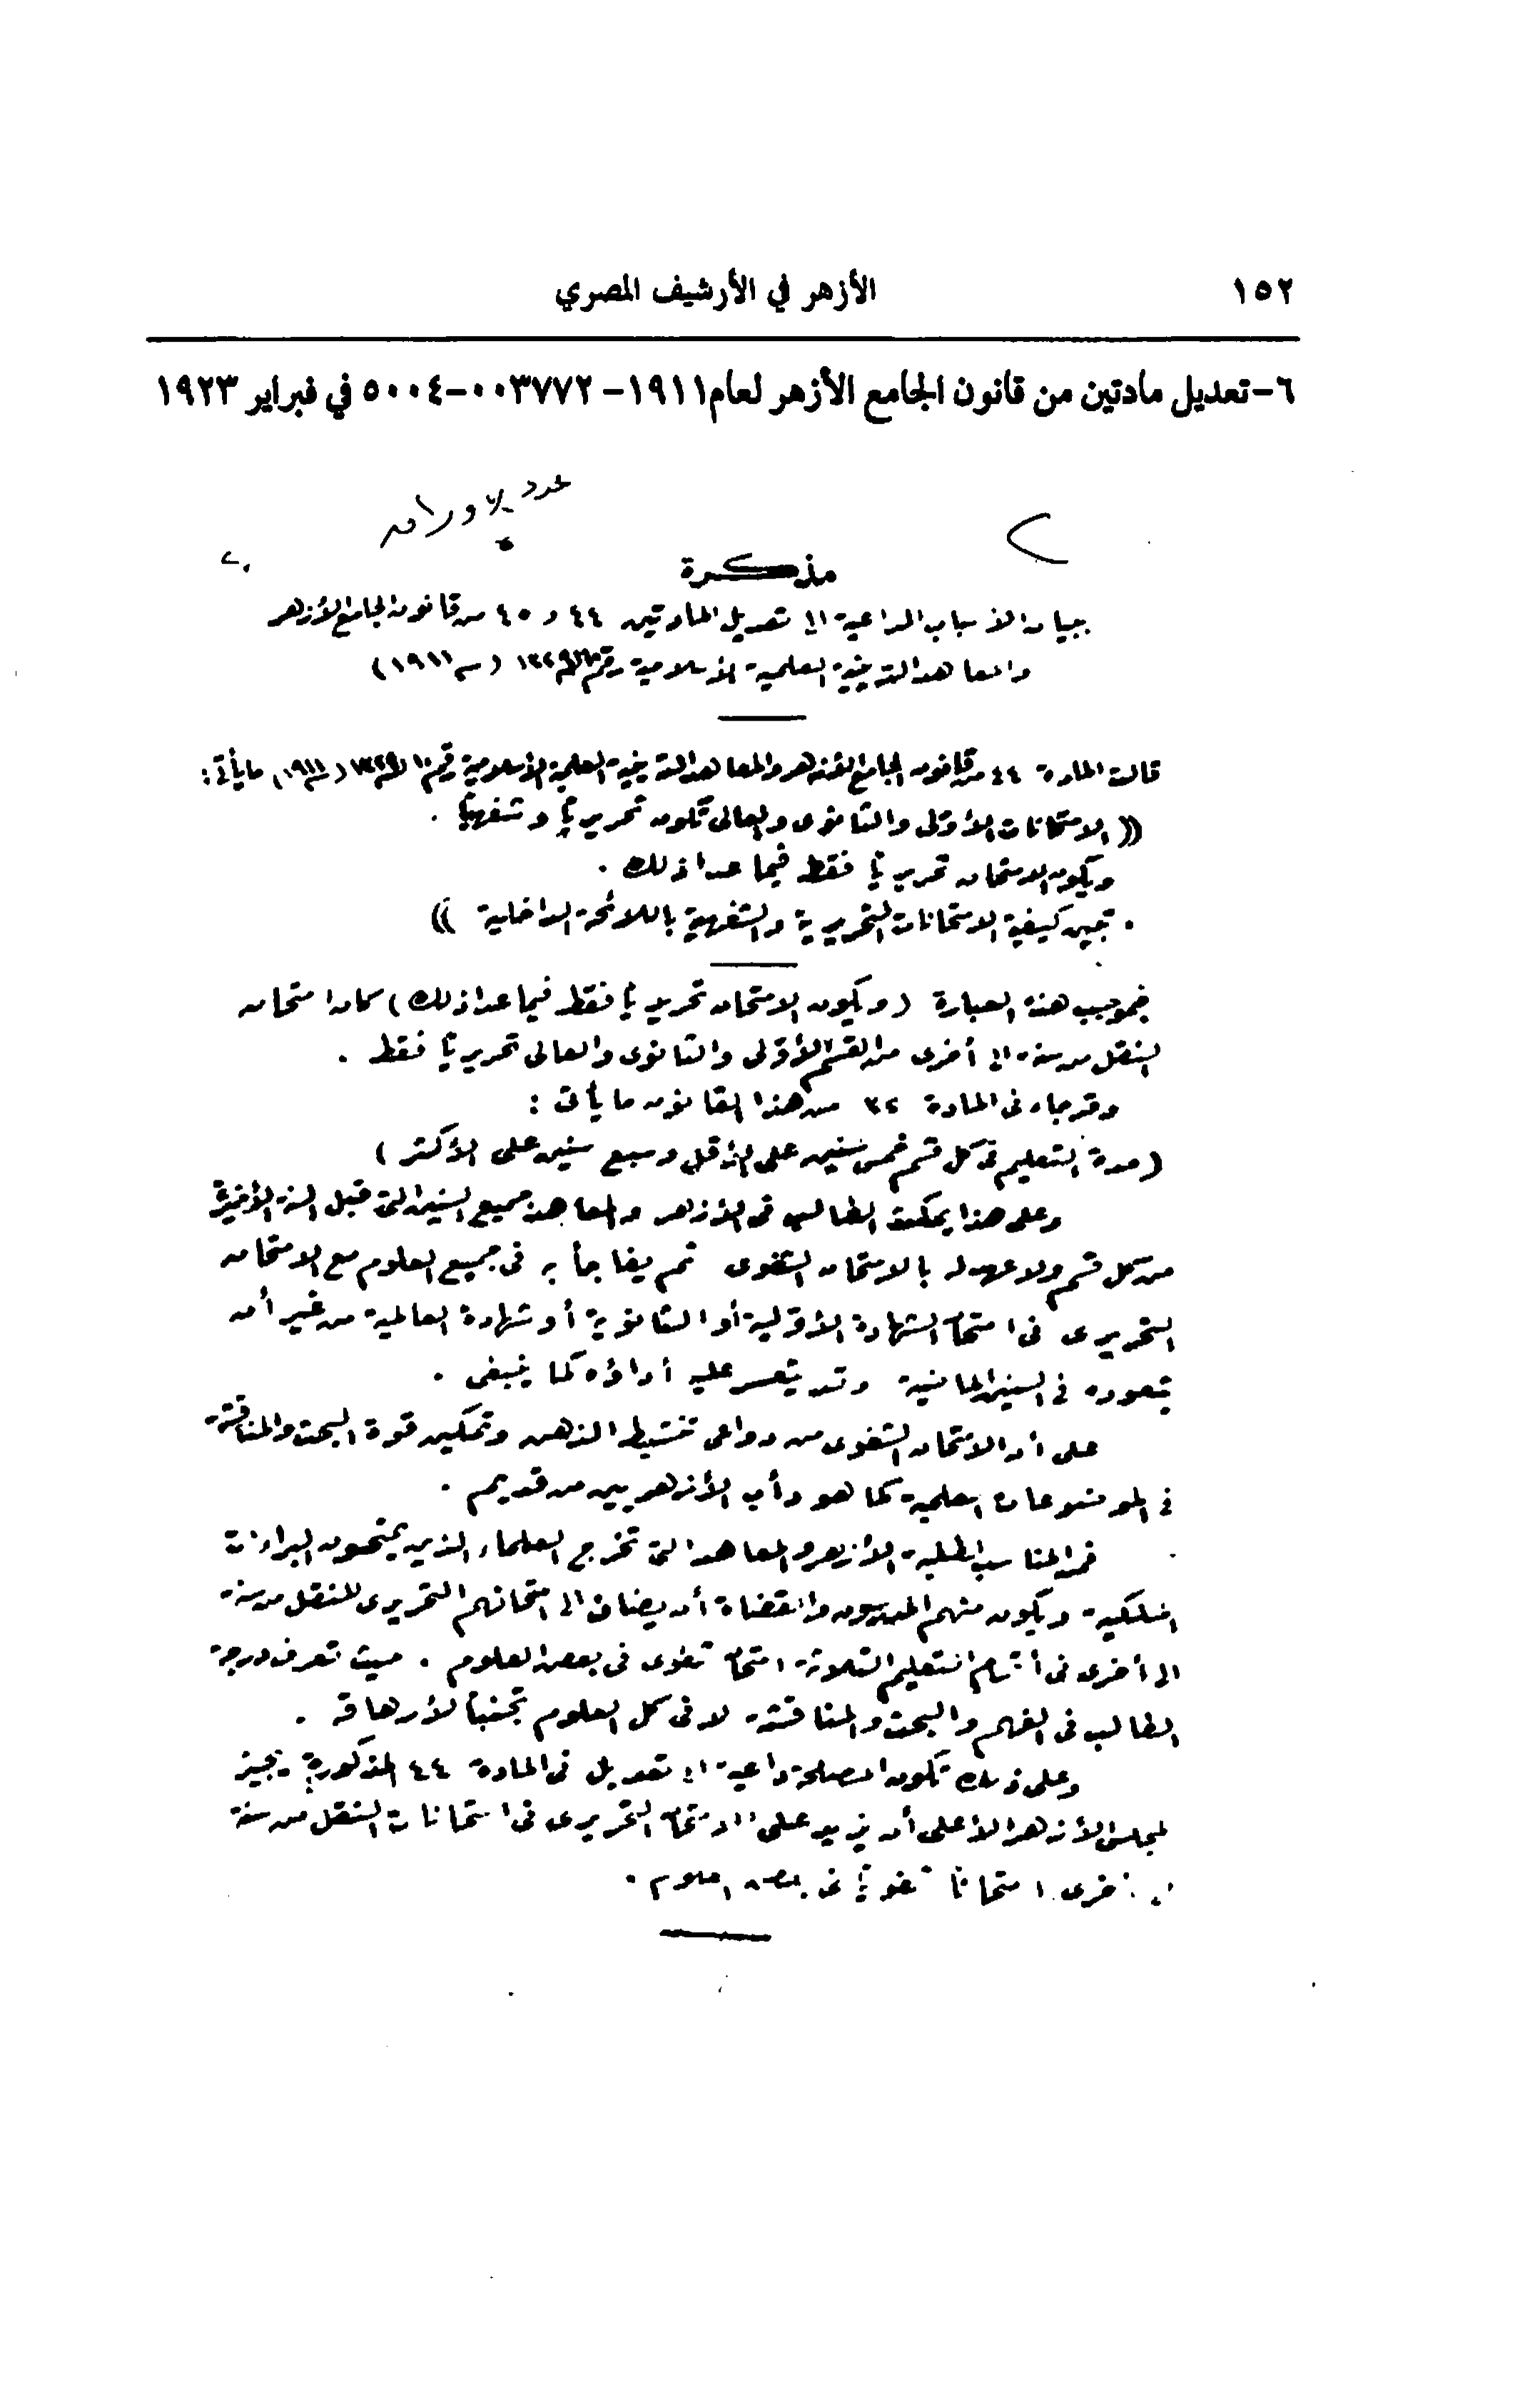 ١٥٢
الأزهر في الأرشيف المصري
٦- تعديل مادتين من قانون الجامع الأزهر لعام ١٩١١- ٠٠٣٧٧٢-٥٠٠٤ في فبراير ١٩٢٣
عدد الاوراق
مذكرة
ببيان الأسباب الداعية الى تعديل المادتين ٤٤ و ٤٥ من قانون الجامع الأزهر
والمعاهد الدينية العلمية الاسلامية رقم ١٠ لسنة ١٣٢٩ (سنة ١٩١١)
قالت المادة ٤٤ من قانون الجامع الأزهر والمعاهد الدينية العلمية الأسلامية رقم ١٠ لسنة ١٣٢٩ (سنة ١٩١١) ما يأتى :
(( الامتحانات الأولى والثانوى والعالى تكون تحريريا وشفهيا .
ويكون الامتحان تحريريا فقط فيما عدا ذلك .
تبين كيفية الامتحانات التحريرية والشفهية باللائحة الداخلية ))
فبموجب هذه العبارة (ويكون الامتحان تحريريا فقط فيما عدا ذلك) كان امتحان
النقل من سنة الى أخرى من القسم الأولى والثانوى والعالى تحريريا فقط .
وقد جاء فى المادة ٣٢ من هذا القانون ما يأتى :
(مدة التعليم فى كل قسم خمس سنين على الأقل وسبع سنين على الأكثر)
وعلى هذا يمكث الطالب فى الأزهر والمعاهد جميع السنين التى قبل السنة الأخيرة
من كل قسم ولا عهد له بالامتحان الشفوى ثم يفاجأ به فى جميع العلوم مع الامتحان
التحريرى فى امتحان الشهادة الأولية أو الثانوية أو شهادة العالمية من غير أن
يتعوده فى السنين الماضية وقد يتعسر عليه أداؤه كما ينبغى .
على أن الامتحان الشفوى من دواعى تنشيط الذهن وتمكين قوة البحث والمناقشة
فى الموضوعات العلمية كما هو دأب الأزهريين من قديم .
فمن المناسب لطلبة الأزهر والمعاهد التى تخرج العلماء الذين يمنحون البراءات
الملكية ويكون منهم المدرسون والقضاة أن يضاف الى امتحانهم التحريرى للنقل من سنة
الى أخرى فى أقسام التعليم الثلاثة امتحان شفوى فى بعض العلوم . حيث تعرف درجة
الطالب فى الفهم والبحث والمناقشة لا فى كل العلوم تجنبا لأرهاقه .
وعلى ذلك تكون المصلحة داعية الى تعديل فى المادة ٤٤ المذكورة يجيز
لمجلس الأزهر الأعلى أن يزيد على الامتحان التحريرى فى امتحانات النقل من سنة
الى أخرى امتحانا شفويا فى بعض العلوم .